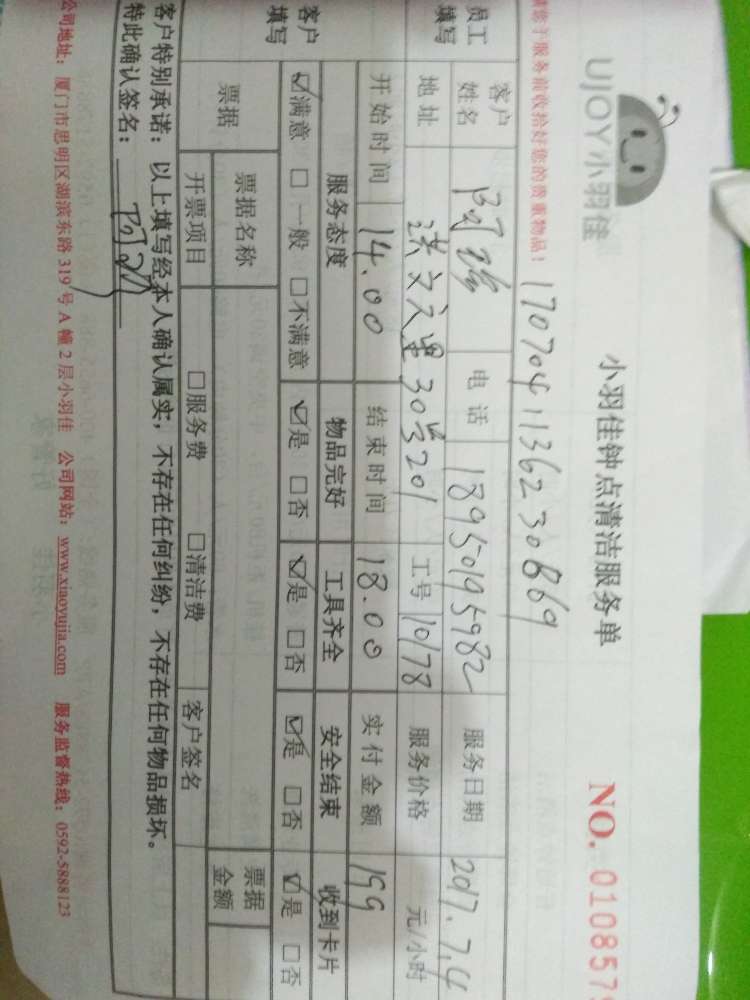 UJOY小羽佳
小羽佳钟点清洁服务单
NO. 010857
请您于服务前收拾好您的贵重物品！
17070411362230869
员工填写
客户姓名 阿瑞 电话 18950195982 服务日期 2017.7.4
地址 洪文六里30号201 工号 10178 服务价格 元/小时
开始时间 14.00 结束时间 18.00 实付金额 199
客户填写
服务态度 物品完好 工具齐全 安全结束 收到卡片
☑满意 □一般 □不满意 ☑是 □否 ☑是 □否 ☑是 □否 ☑是 □否
票据 票据名称 票据金额
开票项目 □服务费 □清洁费 客户签名
客户特别承诺：以上填写经本人确认属实，不存在任何纠纷，不存在任何物品损坏。
特此确认签名：
公司地址：厦门市思明区湖滨东路 319 号 A 幢 2 层小羽佳 公司网站：www.xiaoyujia.com 服务监督热线：0592-5888123